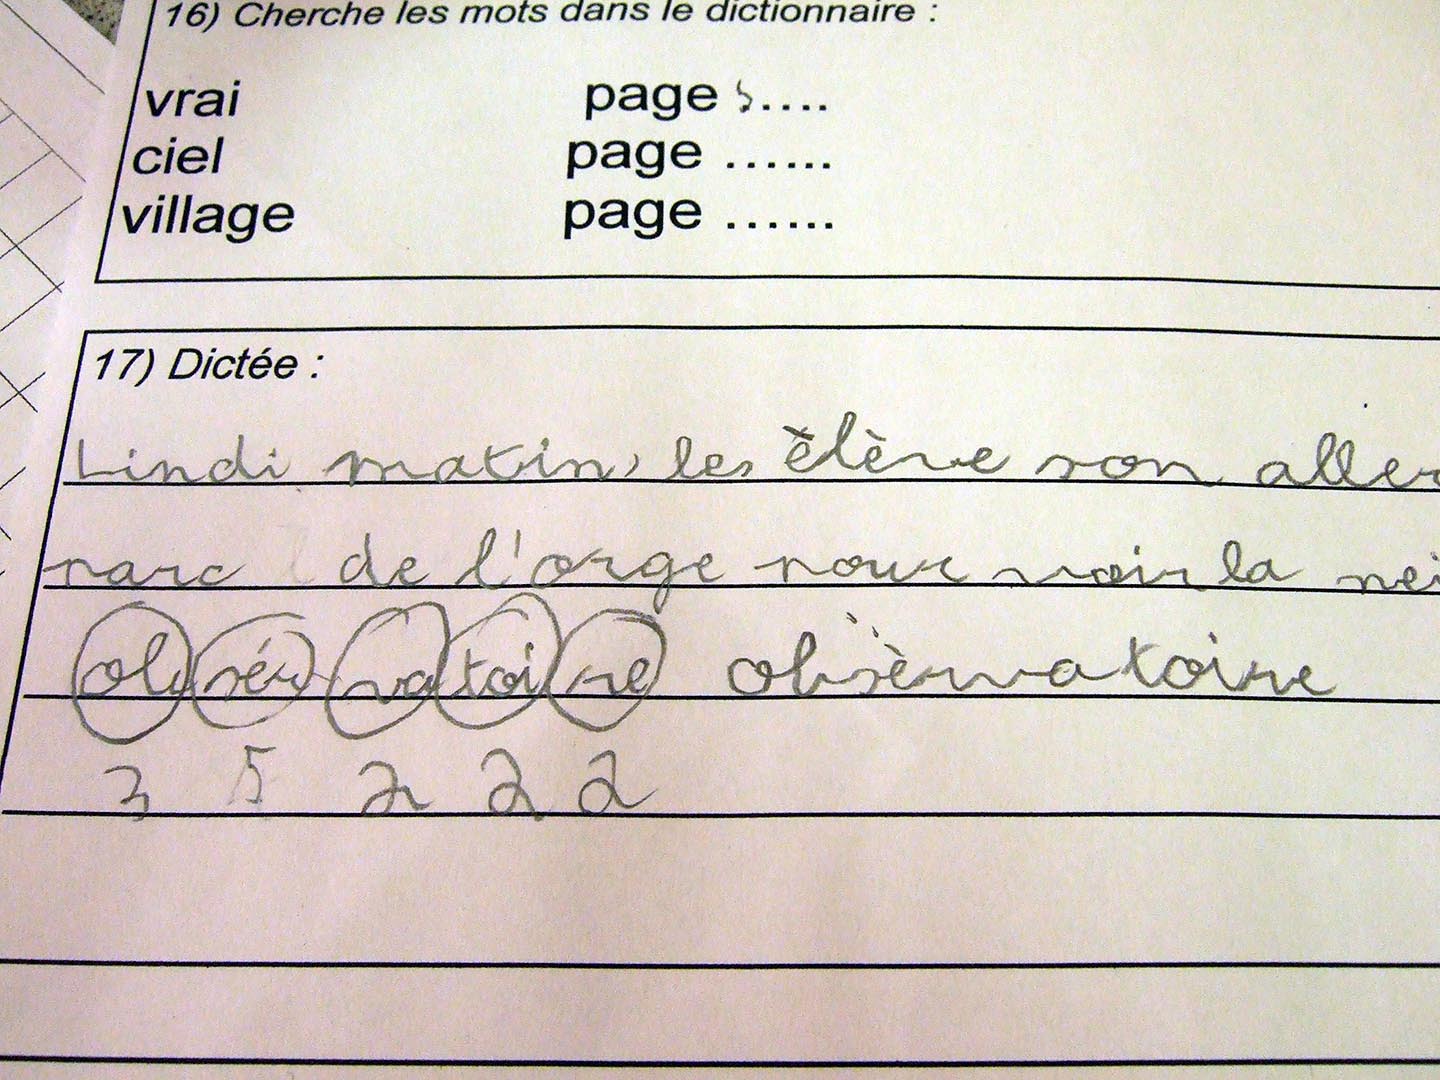 16) Cherche les mots dans le dictionnaire :
vrai page 5....
ciel page ......
village page ......
17) Dictée :
Lindi matin, les élève son aller
parc de l'orge pour voir la nei
obsérvatoire obsèrvatoire
3 5 2 2 2